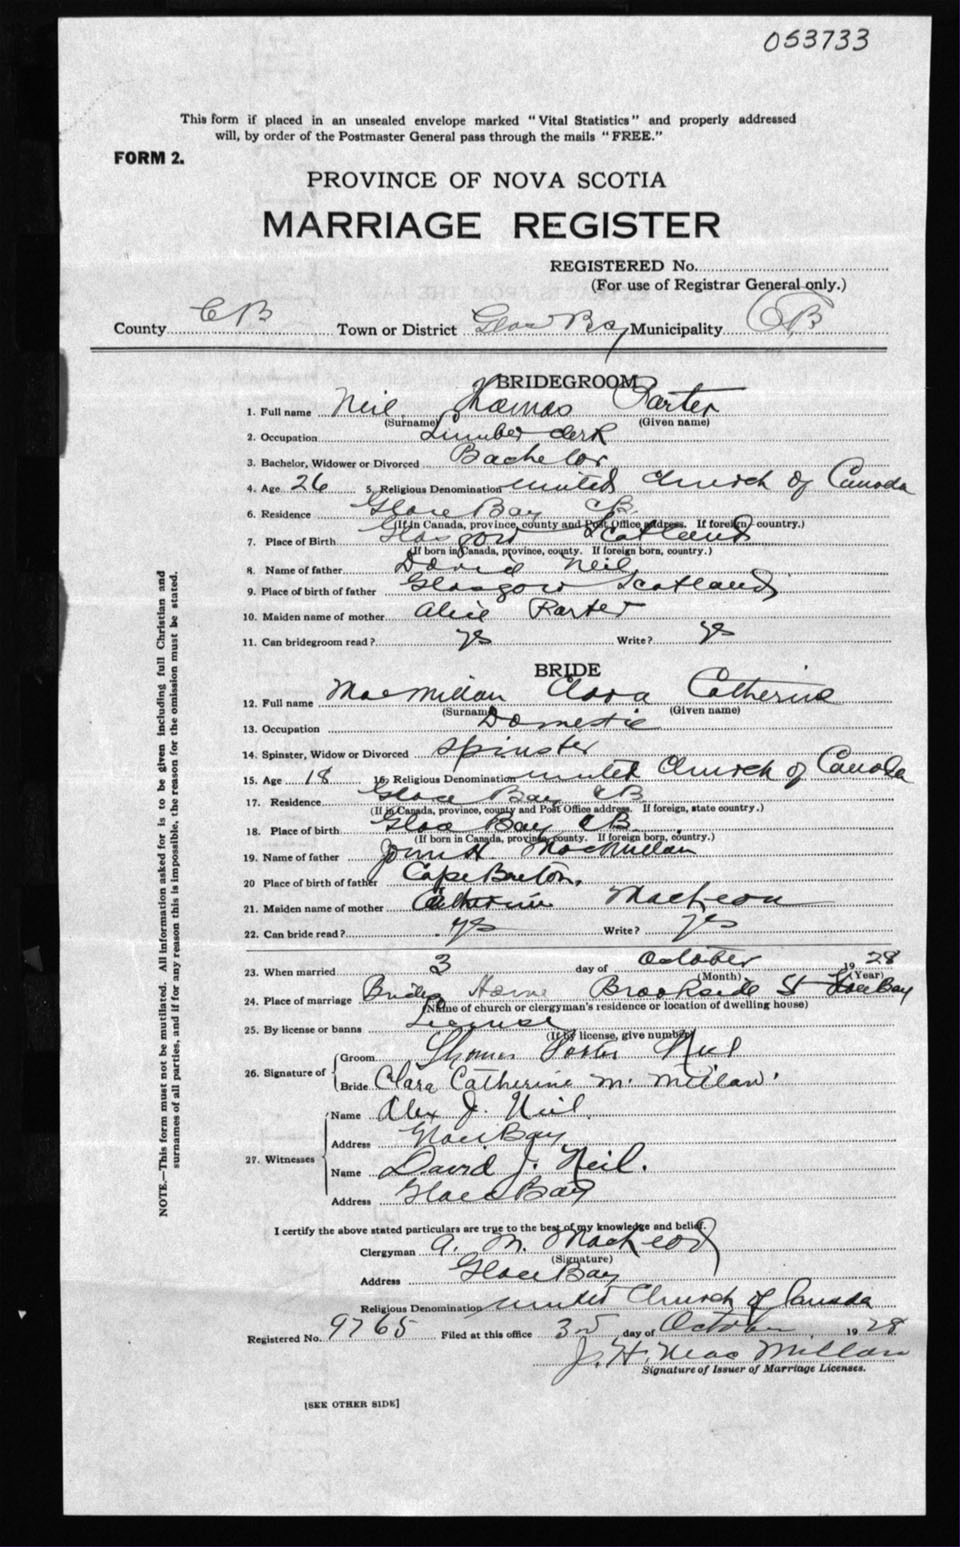 053733
This form if placed in an unsealed envelope marked "Vital Statistics" and properly addressed
will, by order of the Postmaster General pass through the mails "FREE."
FORM 2.
PROVINCE OF NOVA SCOTIA
MARRIAGE REGISTER
REGISTERED No.
(For use of Registrar General only.)
County CB Town or District Glace Bay Municipality CB
BRIDEGROOM
1. Full name Neil Thomas Porter
(Surname) (Given name)
2. Occupation Lumber clerk
3. Bachelor, Widower or Divorced Bachelor
4. Age 26 5. Religious Denomination United Church of Canada
6. Residence Glace Bay CB
(If in Canada, province, county and Post Office address. If foreign country.)
7. Place of Birth Glasgow Scotland
(If born in Canada, province, county. If foreign born, country.)
8. Name of father David Neil
9. Place of birth of father Glasgow Scotland
10. Maiden name of mother Alice Porter
11. Can bridegroom read? yes Write? yes
BRIDE
12. Full name MacMillan Clara Catherine
(Surname) (Given name)
13. Occupation Domestic
14. Spinster, Widow or Divorced Spinster
15. Age 18 16. Religious Denomination United Church of Canada
17. Residence Glace Bay CB
(If in Canada, province, county and Post Office address. If foreign, state country.)
18. Place of birth Glace Bay CB
(If born in Canada, province, county. If foreign born, country.)
19. Name of father John H. MacMillan
20 Place of birth of father Cape Breton.
21. Maiden name of mother Catherine MacLeod
22. Can bride read? yes Write? yes
23. When married 3 day of October 1928
(Month) (Year)
24. Place of marriage Brides Home Brookside St Glace Bay
(Name of church or clergyman's residence or location of dwelling house)
25. By license or banns License
(If by license, give number)
26. Signature of
Groom Thomas Porter Neil
Bride Clara Catherine McMillan.
27. Witnesses
Name Alex J. Neil.
Address Glace Bay
Name David J. Neil.
Address Glace Bay
I certify the above stated particulars are true to the best of my knowledge and belief.
Clergyman A. M. MacLeod
(Signature)
Address Glace Bay
Religious Denomination United Church of Canada
Registered No. 9765 Filed at this office 3rd day of October 1928
J. H. MacMillan
Signature of Issuer of Marriage Licenses.
[SEE OTHER SIDE]
NOTE.—This form must not be mutilated. All information asked for is to be given including full Christian and
surnames of all parties, and if for any reason this is impossible, the reason for the omission must be stated.